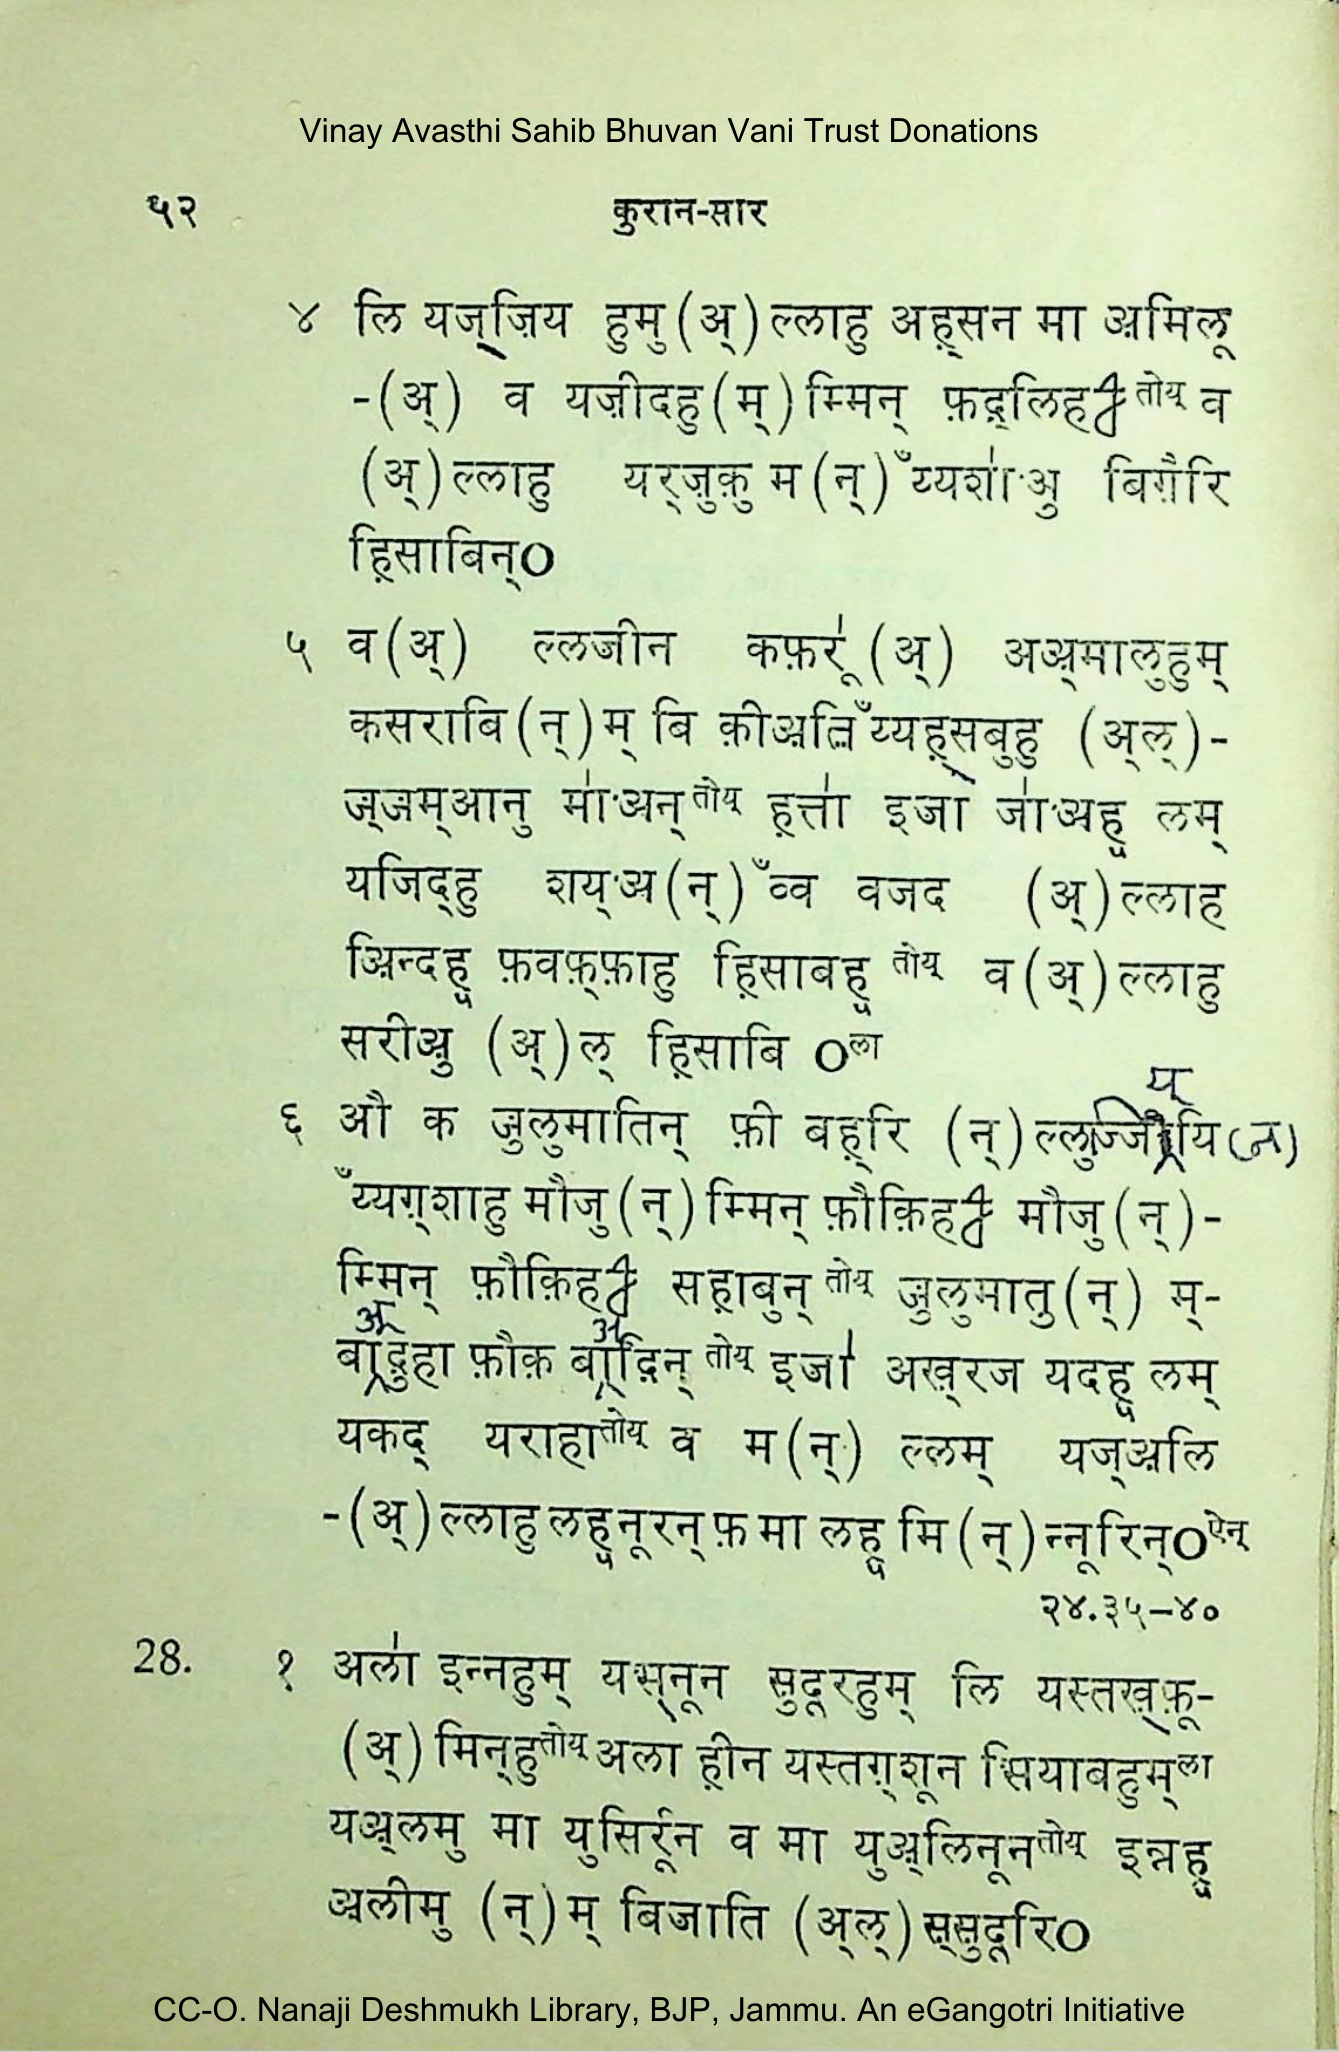 Vinay Avasthi Sahib Bhuvan Vani Trust Donations
५२ कुरान-सार
४ लि यज्ज़िय हुमु (अ्) ल्लाहु अह़्सन मा अ़मिलू
-(अ्) व यज़ीदहु (म्) म्मिन् फ़द़्लिह तोय् व
(अ्) ल्लाहु यर्ज़ुक़ु म (न्) ँय्यशा॑अु बिग़ैरि
ह़िसाबिन्O
५ व (अ्) ल्लजीन कफ़रू॑ (अ्) अअ़्मालुहुम्
कसराबि (न्) म् बि क़ीअ़तिँ य्यह़्सबुहु (अ्ल्)-
ज़्ज़म्आनु मा॑अन् तोय् ह़त्ता॑ इजा॑ जा॑अहू लम्
यजिद्हु शय्अ (न्) ँव्व वजद (अ्) ल्लाह
अ़िन्दहू फ़वफ़्फ़ाहु ह़िसाबहू तोय् व (अ्) ल्लाहु
सरीअु़ (अ्) ल् ह़िसाबि O ला
य्
६ औ क ज़ुलुमातिन् फ़ी बह़्रि (न्) ल्लुज्जीयि (न)
ँय्यग़्शाहु मौजु (न्) म्मिन् फ़ौक़िह मौजु (न्)-
म्मिन् फ़ौक़िह सह़ाबुन् तोय् ज़ुलुमातु (न्) म्-
बअ़्द़ुहा फ़ौक़ बअ़्द़िन् तोय् इजा॑ अख़्रज यदहू लम्
यकद् यराहा तोय् व म (न्) ल्लम् यज्अ़लि
-(अ्) ल्लाहु लहू नूरन् फ़ मा लहू मि (न्) न्नूरिन्O ऐन्
२४.३५–४०
28. १ अला॑ इन्नहुम् यस्नून सुदूरहुम् लि यस्तख़्फ़ू-
(अ्) मिन्हु तोय् अला ह़ीन यस्तग़्शून सियाबहुम् ला
यअ़्लमु मा युसिर्रून व मा युअ़्लिनून तोय् इन्नहू
अ़लीमु (न्) म् बिजाति (अ्ल्) स्सुदूरिO
CC-O. Nanaji Deshmukh Library, BJP, Jammu. An eGangotri Initiative